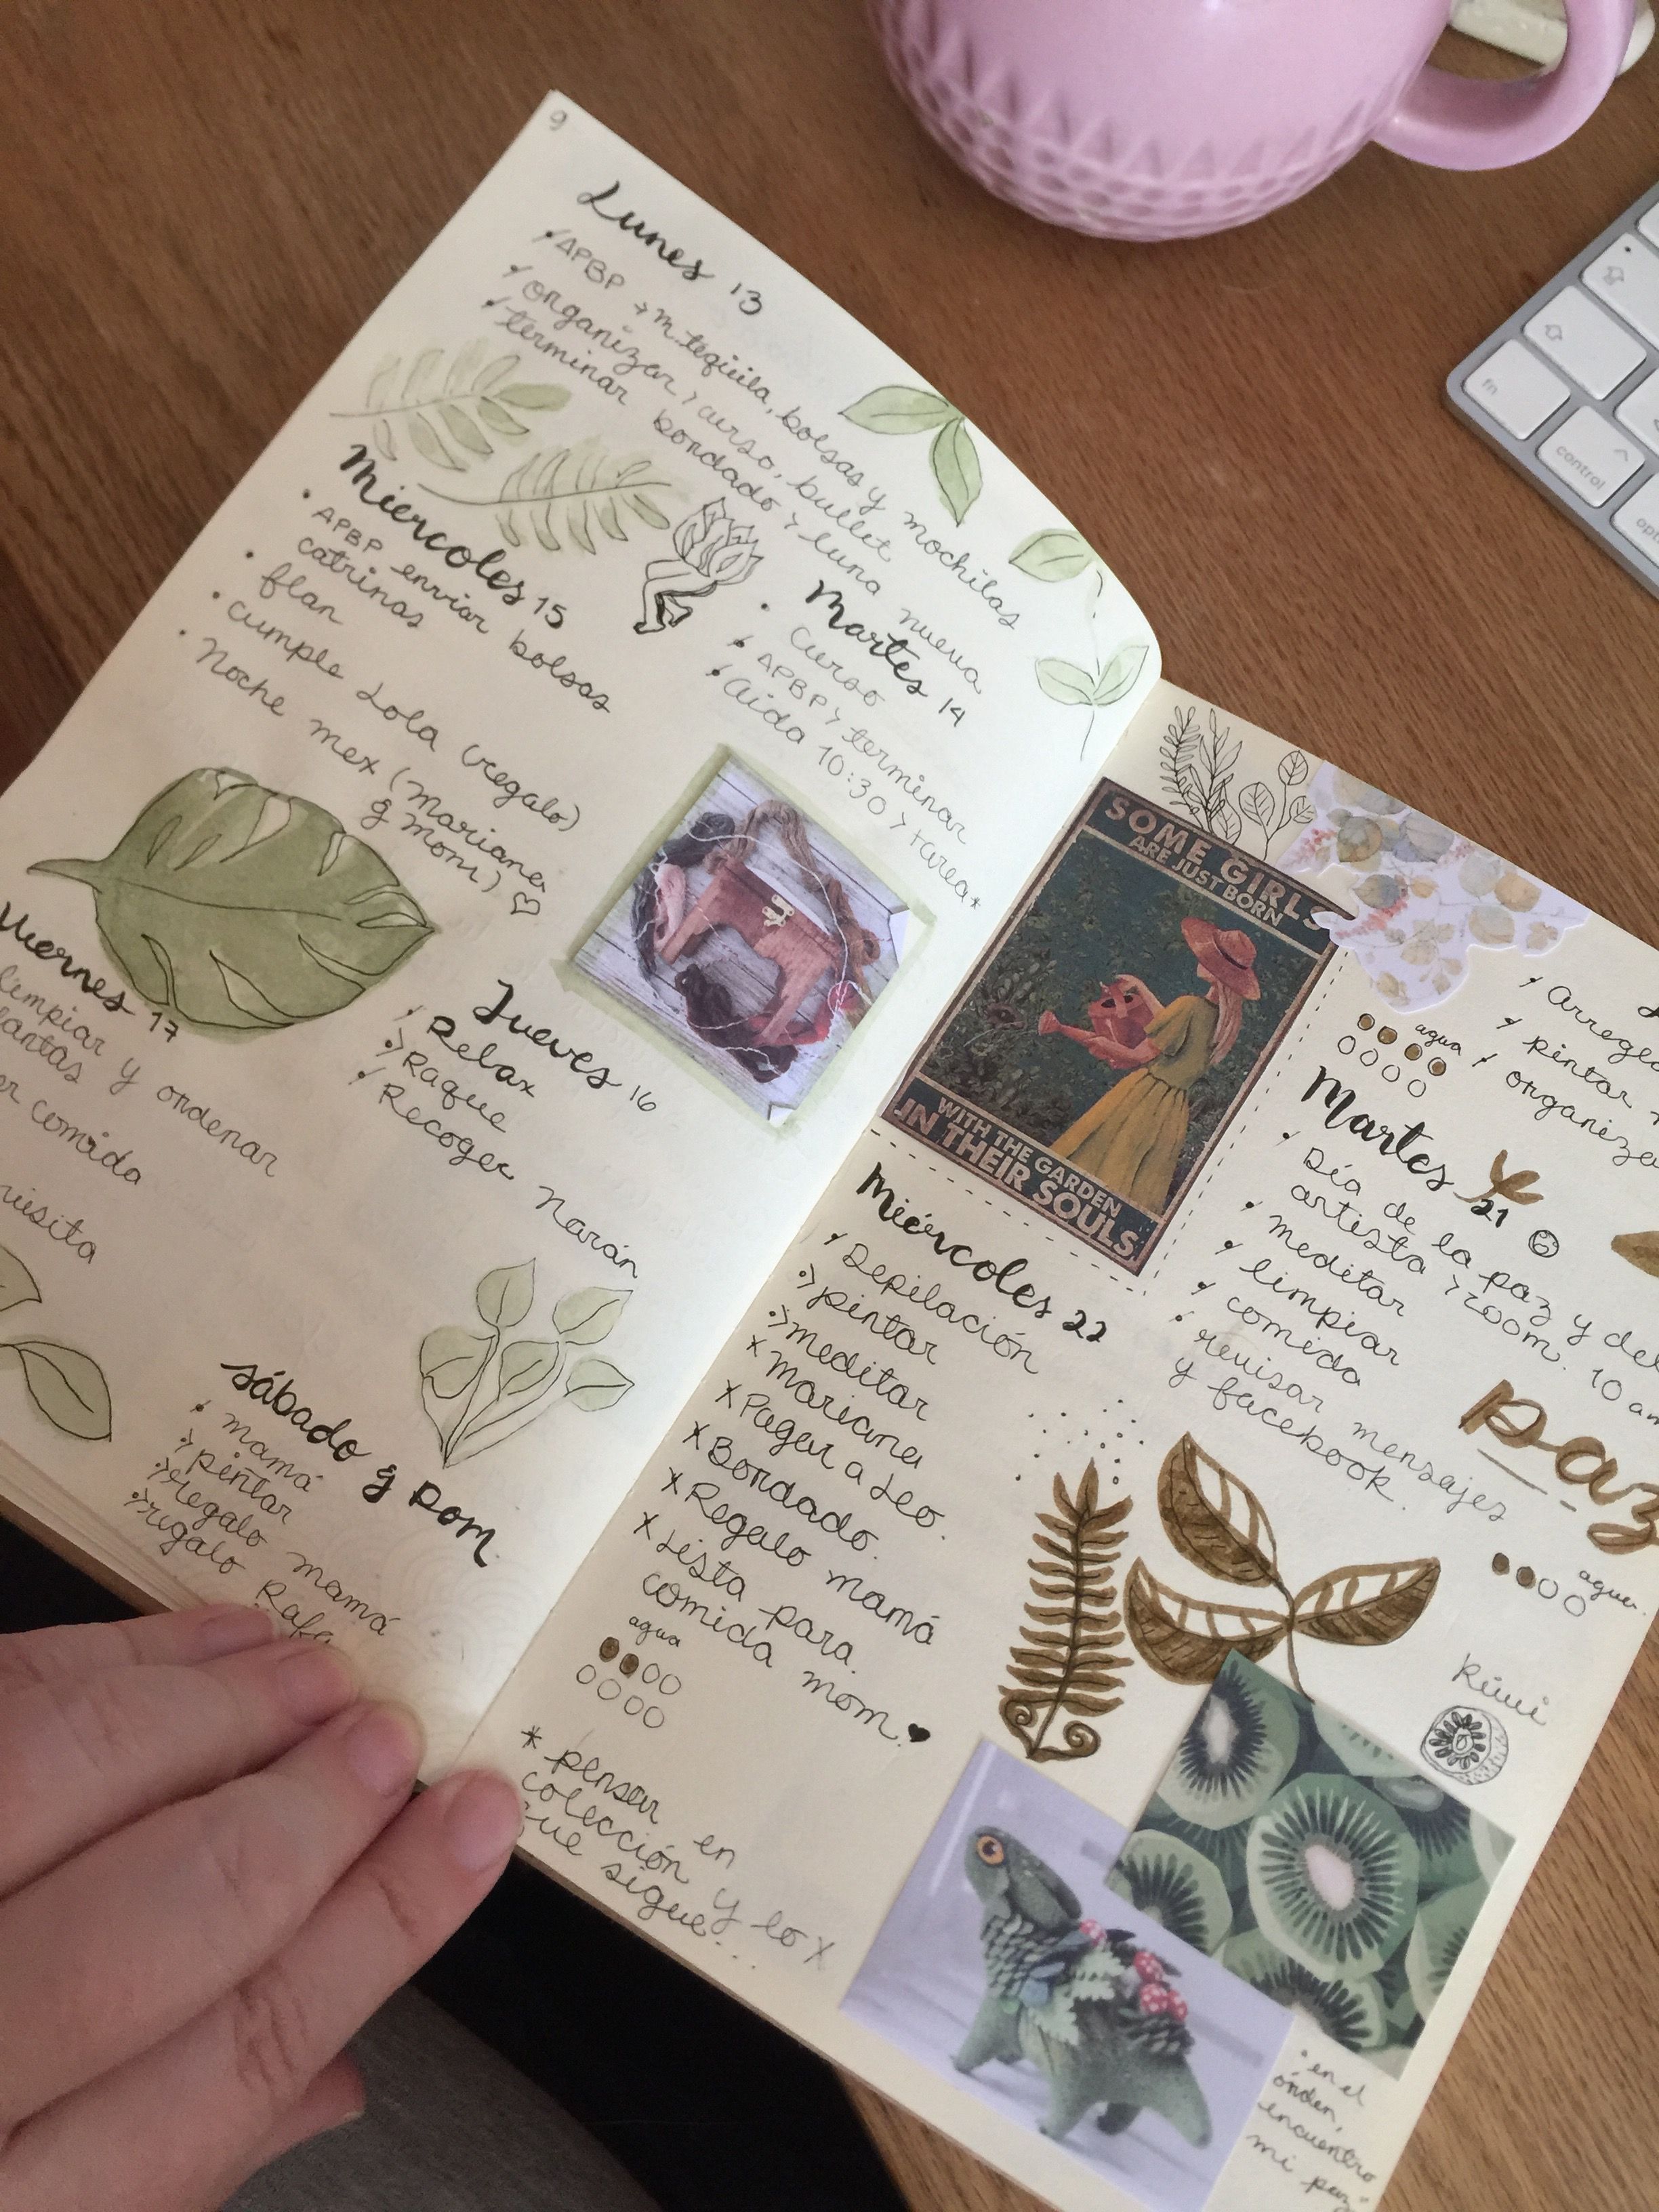 9
Lunes 13
APBP > m. tequila, bolsas y mochilas
organizar > curso, bullet
terminar bordado > luna nueva
Martes 14
Curso
APBP > terminar
Aida 10:30 > tarea*
Miércoles 15
APBP enviar bolsas
catrinas
flan
cumple Lola (regalo)
Noche mex (Mariana
& moni) ♡
Jueves 16
Relax
Raque
Recoger Narán
Viernes 17
limpiar y ordenar
comida
sábado & Dom.
mamá
pintar
regalo mamá
regalo Rafa
SOME GIRLS
ARE JUST BORN
WITH THE GARDEN
IN THEIR SOULS
pintar
agua
Martes 21
Día de la paz y del
artista > zoom. 10 am
meditar
limpiar
comida
revisar mensajes
y facebook.
Paz
agua
Miércoles 22
Depilación
pintar
meditar
x Mariana
x Pagar a Leo.
x Bordado.
x Regalo mamá
x Lista para
comida mom. ♥
agua
* pensar en
colección y lo x
que sigue...
Kiwi
"en el
órden,
encuentro
mi paz"
fn
control